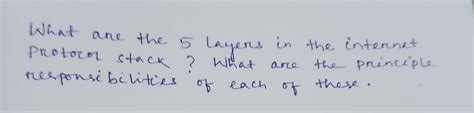 What are the 5 layers in the internet
protocol stack ? What are the principle
responsibilities of each of these.